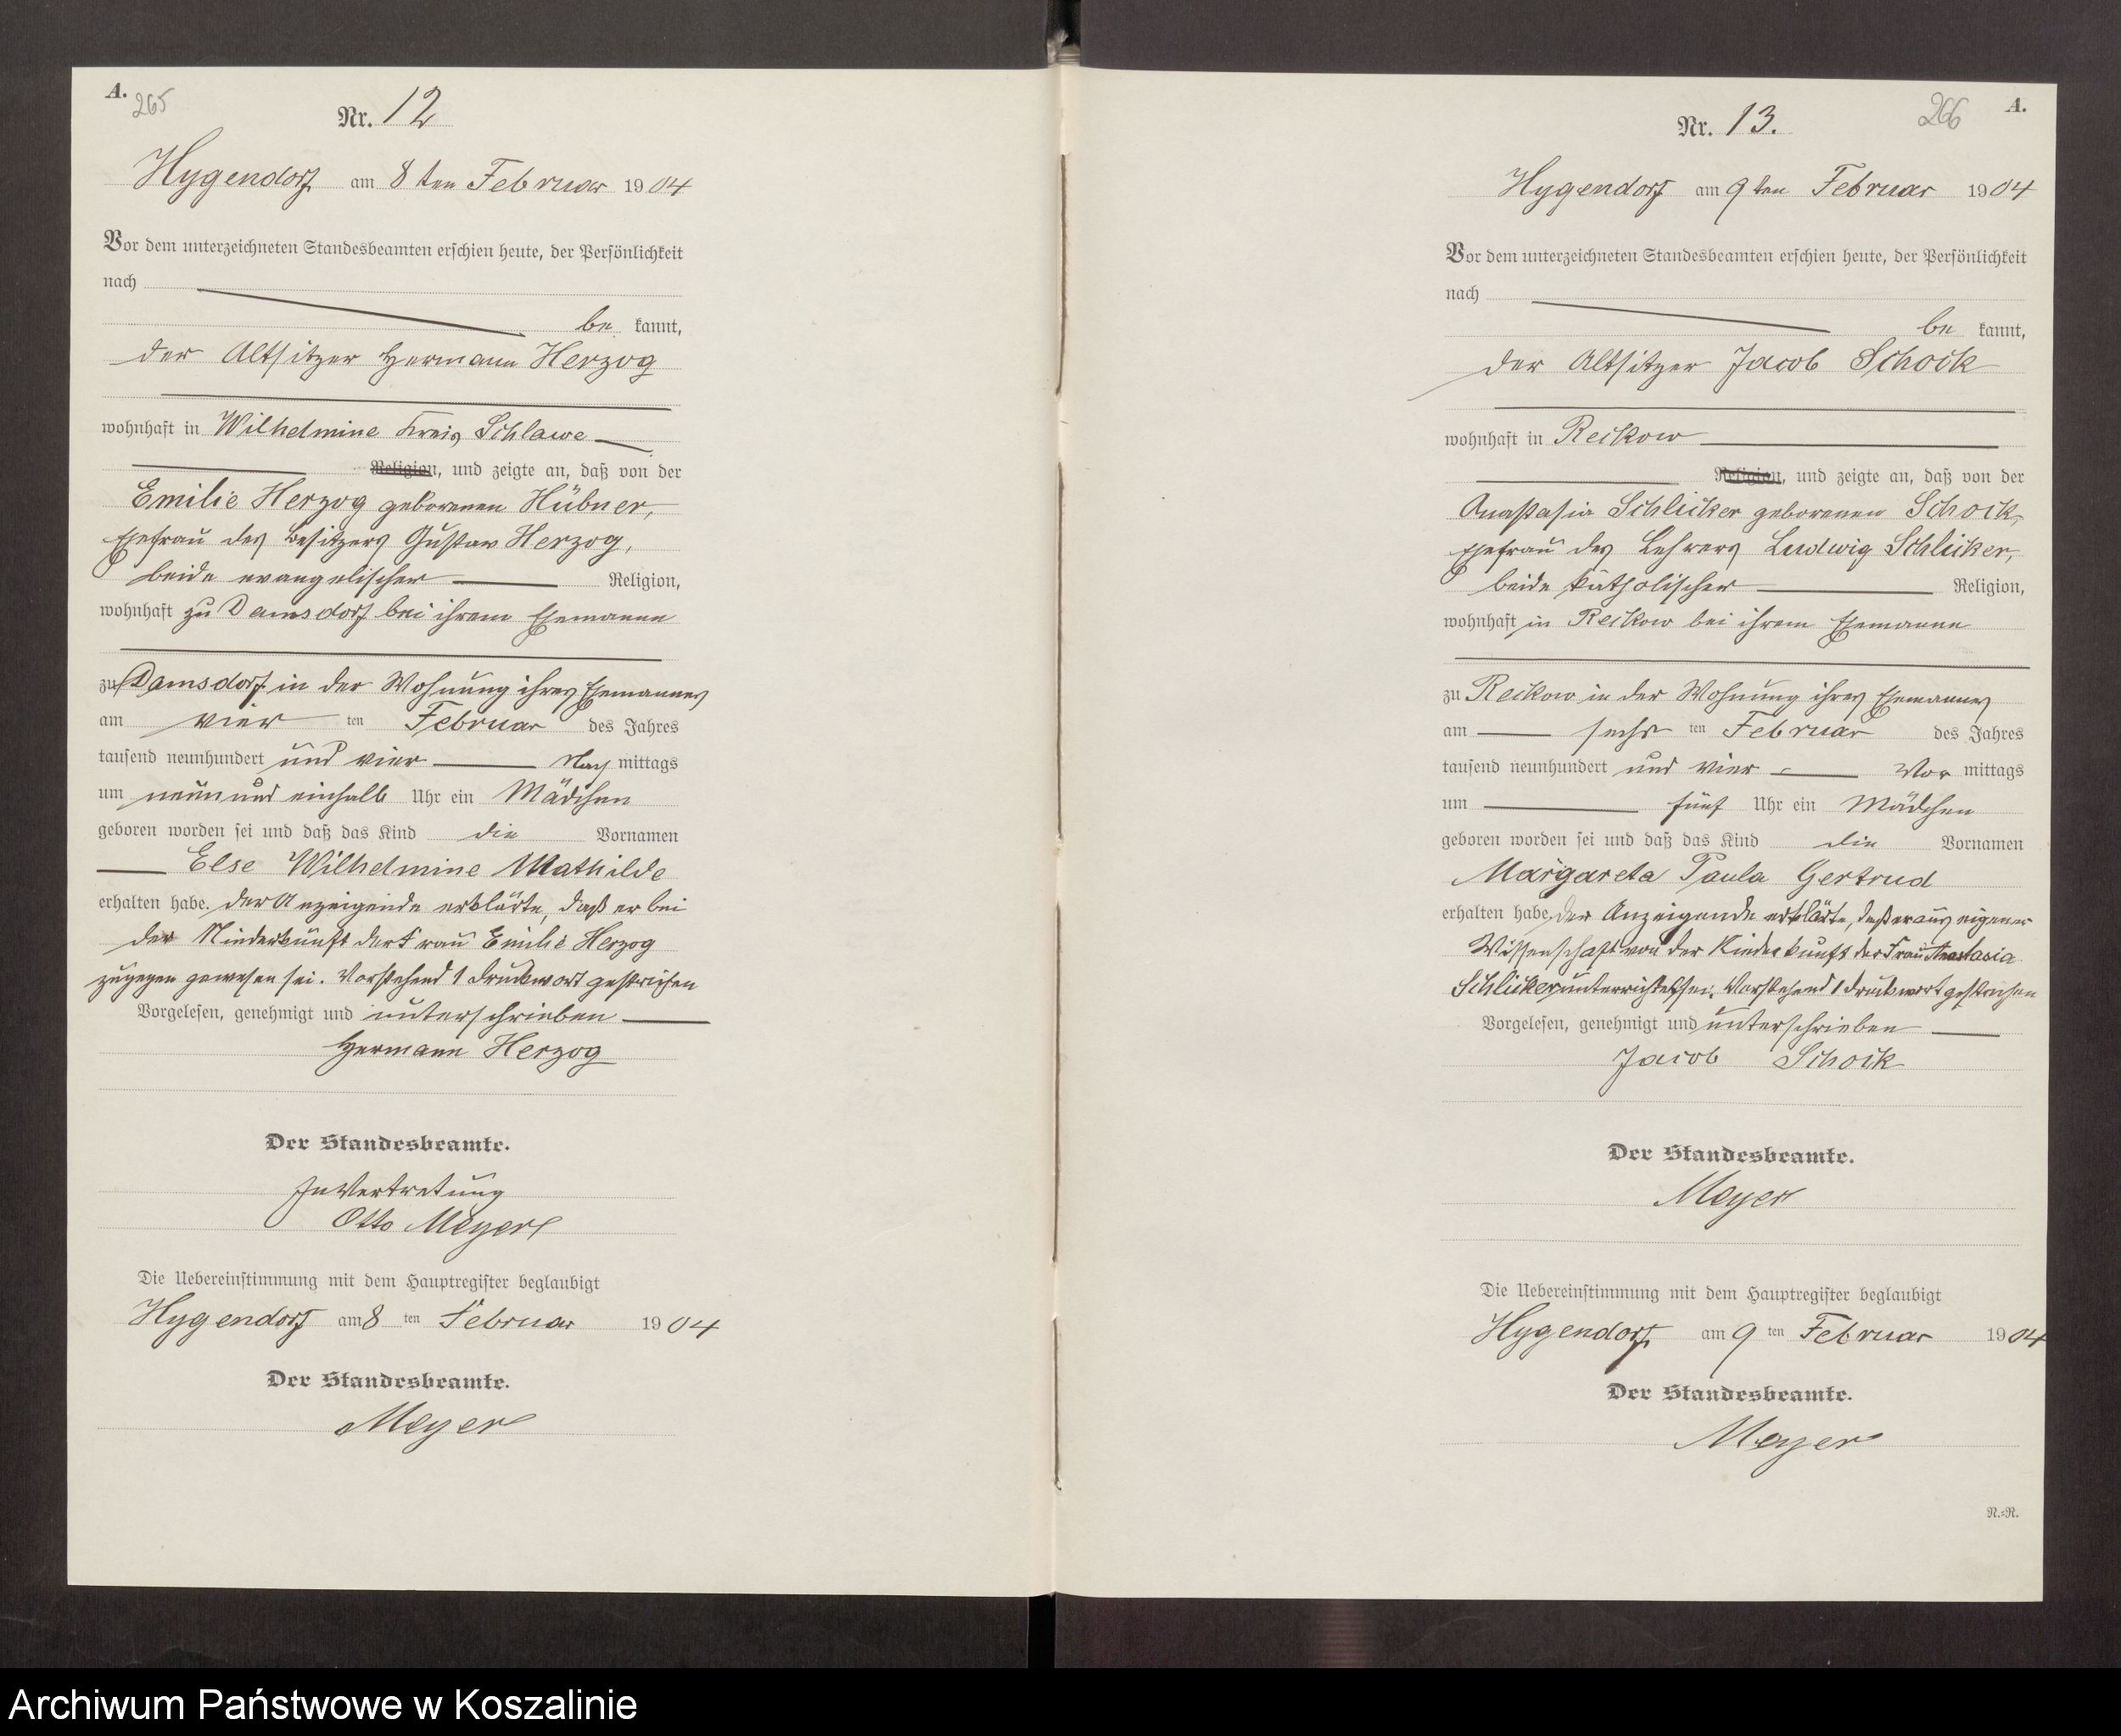 A.
265
Nr. 12
Hygendorf am 8ten Februar 1904
Vor dem unterzeichneten Standesbeamten erschien heute, der Persönlichkeit
nach
be kannt,
der Altsitzer Hermann Herzog
wohnhaft in Wilhelmine Kreis Schlawe
Religion, und zeigte an, daß von der
Emilie Herzog geborenen Hübner,
Ehefrau des Besitzers Gustav Herzog,
beide evangelischer Religion,
wohnhaft zu Damsdorf bei ihrem Ehemanne
zu Damsdorf in der Wohnung ihres Ehemannes
am vier ten Februar des Jahres
tausend neunhundert und vier Nach mittags
um neun und einhalb Uhr ein Mädchen
geboren worden sei und daß das Kind die Vornamen
Else Wilhelmine Mathilde
erhalten habe. Der Anzeigende erklärte, daß er bei
der Niederkunft der Frau Emilie Herzog
zugegen gewesen sei. Vorstehend 1 Druckwort gestrichen
Vorgelesen, genehmigt und unterschrieben
Hermann Herzog
Der Standesbeamte.
In Vertretung
Otto Meyer
Die Uebereinstimmung mit dem Hauptregister beglaubigt
Hygendorf am 8 ten Februar 1904
Der Standesbeamte.
Meyer
266
A.
Nr. 13.
Hygendorf am 9ten Februar 1904
Vor dem unterzeichneten Standesbeamten erschien heute, der Persönlichkeit
nach
be kannt,
der Altsitzer Jacob Schock
wohnhaft in Reckow
Religion, und zeigte an, daß von der
Anastasia Schlicker geborenen Schock,
Ehefrau des Lehrers Ludwig Schlicker,
beide katholischer Religion,
wohnhaft in Reckow bei ihrem Ehemanne
zu Reckow in der Wohnung ihres Ehemannes
am sechs ten Februar des Jahres
tausend neunhundert und vier Vor mittags
um fünf Uhr ein Mädchen
geboren worden sei und daß das Kind die Vornamen
Margareta Paula Gertrud
erhalten habe. Der Anzeigende erklärte, daß er aus eigener
Wissenschaft von der Niederkunft der Frau Anastasia
Schlicker unterrichtet sei. Vorstehend 1 Druckwort gestrichen
Vorgelesen, genehmigt und unterschrieben
Jacob Schock
Der Standesbeamte.
Meyer
Die Uebereinstimmung mit dem Hauptregister beglaubigt
Hygendorf am 9 ten Februar 1904
Der Standesbeamte.
Meyer
R.=R.
Archiwum Państwowe w Koszalinie